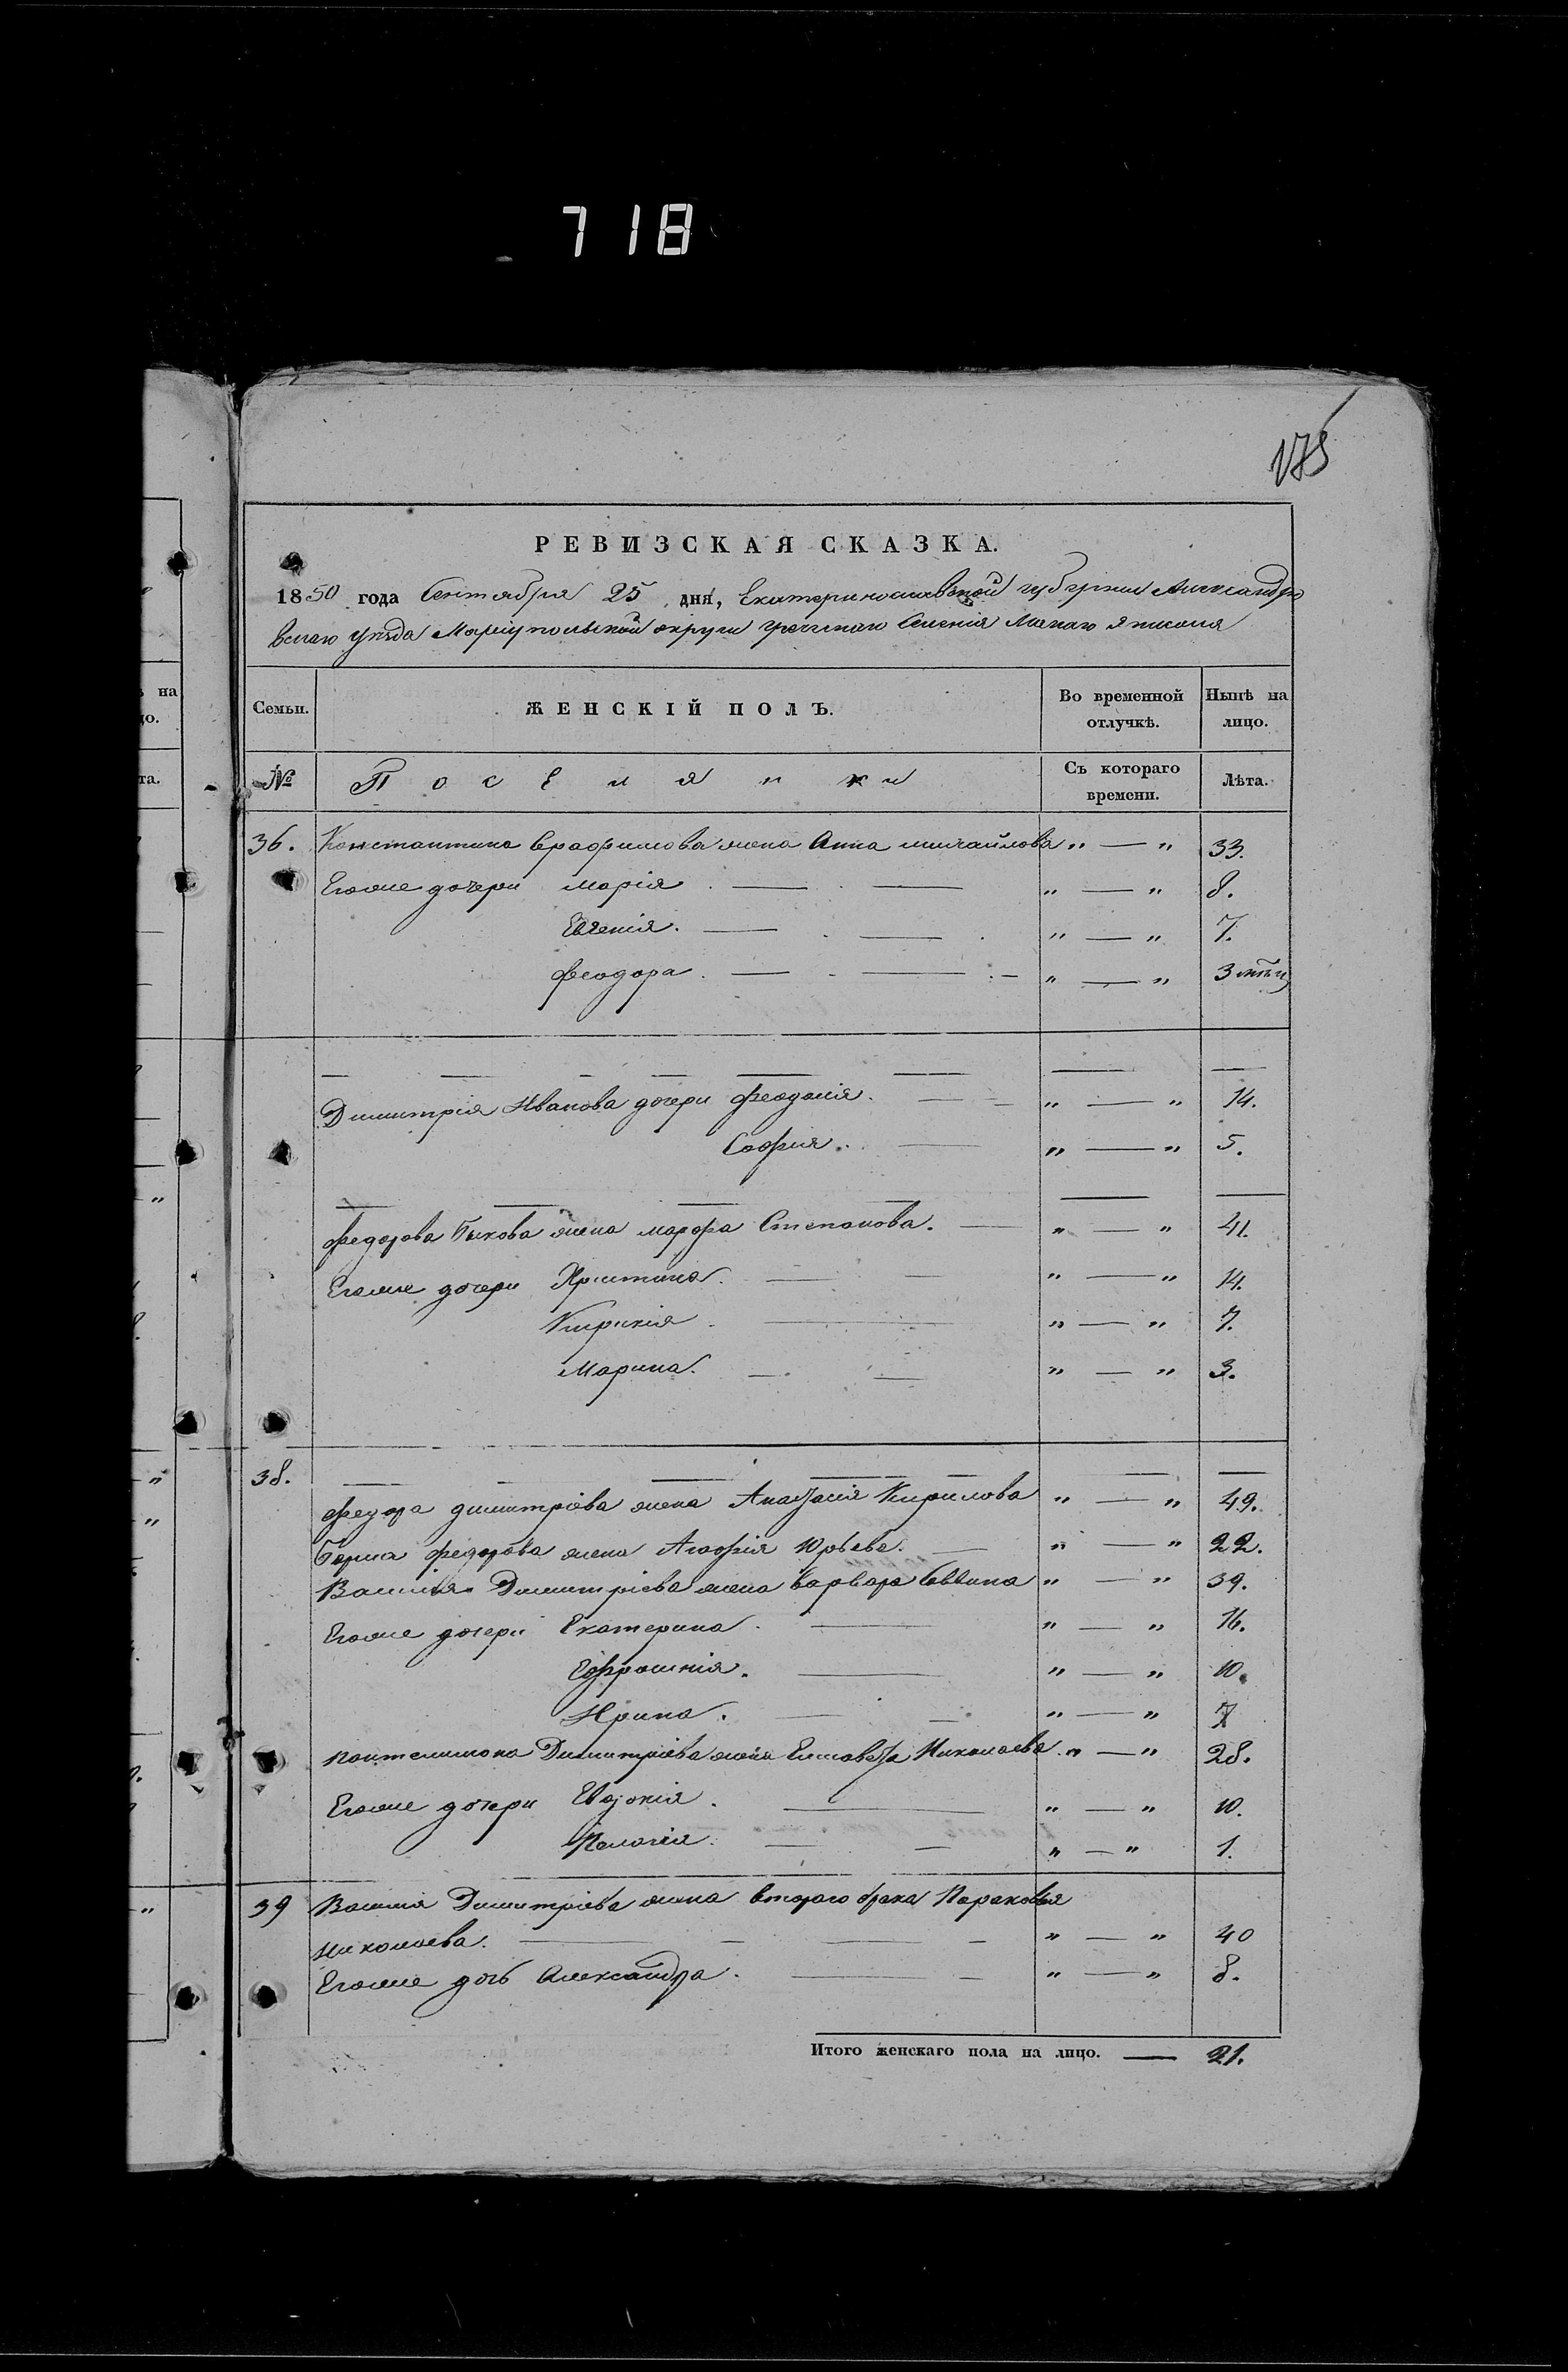 718
175
РЕВИЗСКАЯ СКАЗКА.
1850 года Сентября 25 дня, Екатеринославской губернии Александро
вскаго уѣзда Маріупольской округи греческаго Селенія Малаго Янисоля
на
цо.
Семьи. ЖЕНСКІЙ ПОЛЪ. Во временной отлучкѣ. Нынѣ на лицо.
та.
№ Поселянки Съ котораго времени. Лѣта.
36. Константина Ерафимова жена Анна михайлова " — " 33.
Егоже дочери Марія. — — " — " 8.
Евгенія. — — " — " 7.
Феодора. — — " — " 3 мѣсц
Димитрія Иванова дочери Феодосія. — " — " 14.
София. — " — " 5.
Федорова Быкова жена марфа Степанова. — " — " 41.
Егоже дочери Христина. — — " — " 14.
Кирикія. — " — " 7.
Марина. — — " — " 3.
38.
Федора димитріева жена Анастасія Кирилова " — " 49.
Бориса федорова жена Агафія Юрьева. — " — " 22.
Василия Димитріева жена Варвара Саввина " — " 39.
Егоже дочери Екатерина. — " — " 16.
Ефросинія. — " — " 10.
Ирина. — — " — " 7
пантелимона Димитріева жена Елисавета Николаева. " — " 28.
Егоже дочери Евдокія. — " — " 10.
Пелагія. — — " — " 1.
39 Василия Димитріева жена втораго брака Параковья
николаева. — — — — " — " 40
Егоже дочь Александра. — — " — " 8.
Итого женскаго пола на лицо. — 21.